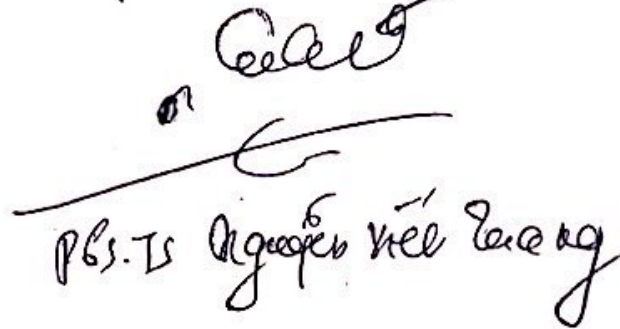 PGS.TS Nguyễn Viết Trung